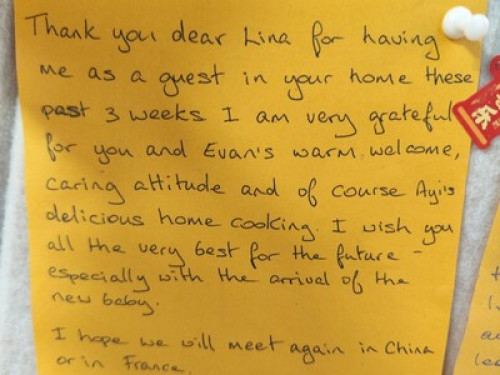 Thank you dear Lina for having
me as a guest in your home these
past 3 weeks. I am very grateful
for you and Evan's warm welcome,
caring attitude and of course Ayi's
delicious home cooking. I wish you
all the very best for the future -
especially with the arrival of the
new baby.
I hope we will meet again in China
or in France.